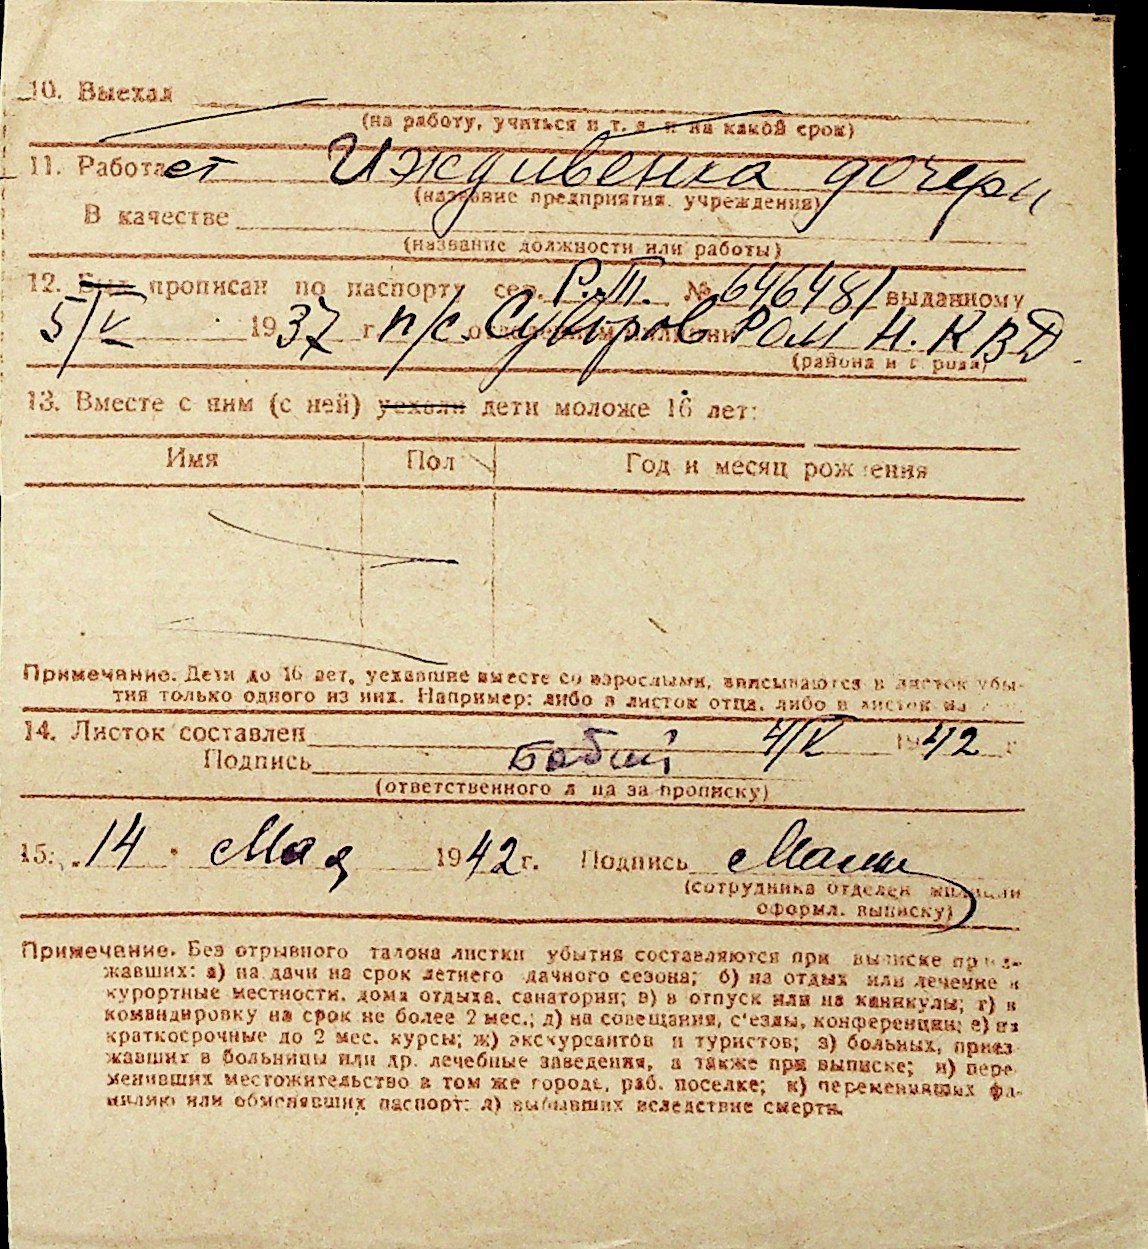 10. Выехал
(на работу, учиться и т. д. и на какой срок)
11. Работает Иждивенка дочери
(название предприятия, учреждения)
В качестве
(название должности или работы)
12. Был прописан по паспорту сер. Р.Ш. № 646481 выданному
5/V 1937 г. п/с. Суворов РОМ Н.КВД
(района и города)
13. Вместе с ним (с ней) уехали дети моложе 16 лет:
Имя Пол Год и месяц рождения
Примечание. Дети до 16 лет, уехавшие вместе со взрослыми, вписываются в листок убы-
тия только одного из них. Например: либо в листок отца, либо в листок
14. Листок составлен 4/V 1942 г
Подпись Бабий
(ответственного лица за прописку)
15. 14 Мая 1942 г. Подпись
(сотрудника отделен милиции
оформл. выписку)
Примечание. Без отрывного талона листки убытия составляются при выписке приез-
жавших: а) на дачи на срок летнего дачного сезона; б) на отдых или лечение в
курортные местности, дома отдыха, санатории; в) в отпуск или на каникулы; г) в
командировку на срок не более 2 мес.; д) на совещания, с'езды, конференции; е) на
краткосрочные до 2 мес. курсы; ж) экскурсантов и туристов; з) больных, приез-
жавших в больницы или др. лечебные заведения, а также при выписке; и) пере-
менивших местожительство в том же городе, раб. поселке; к) переменивших фа-
милию или обменявших паспорт; л) выбывших вследствие смерти.